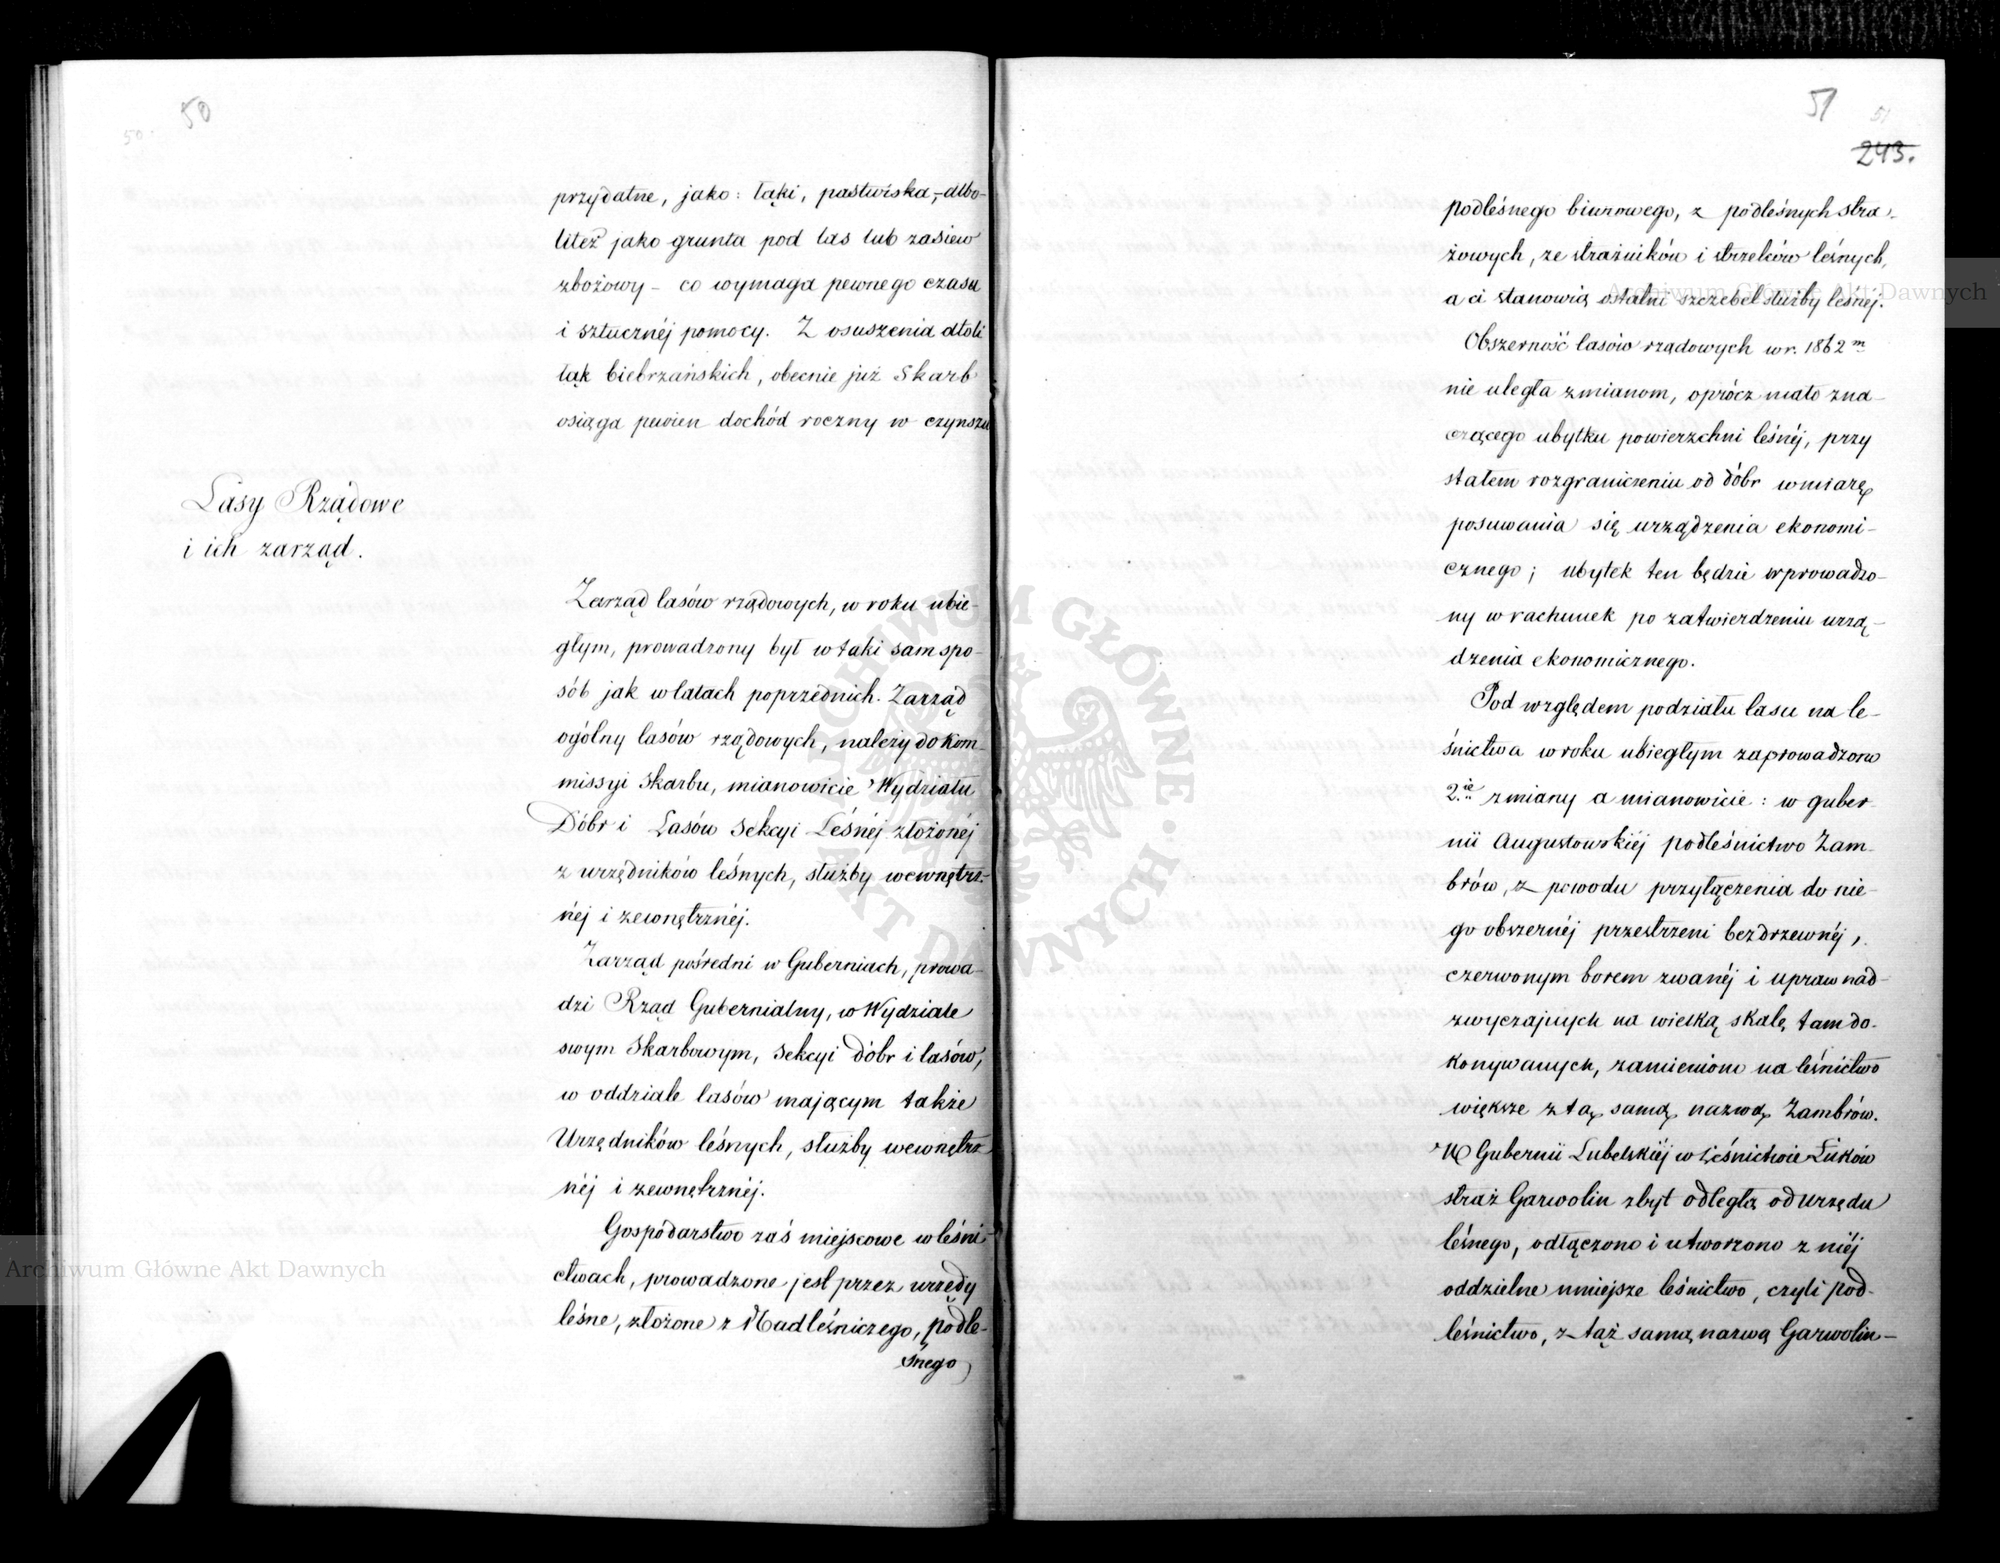 50
50.
przydatne, jako: łąki, pastwiska,-albo-
liteż jako grunta pod las lub zasiew
zbożowy - co wymaga pewnego czasu
i sztucznéj pomocy. Z osuszenia atoli
łąk biebrzańskich, obecnie już Skarb
osiąga pewien dochód roczny w czynszu
Lasy Rządowe
i ich zarząd.
Zarząd lasów rządowych, w roku ubie-
głym, prowadzony był w taki sam spo-
sób jak w latach poprzednich. Zarząd
ogólny lasów rządowych, należy do Kom-
missyi Skarbu, mianowicie Wydziału
Dóbr i Lasów Sekcyi Leśnéj złożonéj
z urzędników leśnych, służby wewnętrz-
néj i zewnętrznéj.
Zarząd pośredni w Guberniach, prowa-
dzi Rząd Gubernialny, w Wydziale
swym Skarbowym, Sekcyi dóbr i lasów,
w oddziale lasów mającym także
Urzędników leśnych, służby wewnętrz
néj i zewnętrznéj.
Gospodarstwo zaś miejscowe w leśni-
ctwach, prowadzone jest przez urzędy
leśne, złożone z Nadleśniczego, podle-
śnego
51
51
243.
podleśnego biurowego, z podleśnych stra-
żowych, ze strażników i strzelców leśnych,
a ci stanowią ostatni szczebel służby leśnéj.
Obszerność lasów rządowych w r. 1862 m
nie uległa zmianom, oprócz mało zna-
czącego ubytku powierzchni leśnéj, przy
stałem rozgraniczeniu od dóbr w miarę
posuwania się urządzenia ekonomi-
cznego; ubytek ten będzie wprowadzo-
ny w rachunek po zatwierdzeniu urzą-
dzenia ekonomicznego.
Pod względem podziału lasu na le-
śnictwa w roku ubiegłym zaprowadzono
2.ie zmiany a mianowicie: w guber
nii Augustowskiéj podleśnictwo Zam-
brów, z powodu przyłączenia do nie-
go obszernéj przestrzeni bezdrzewnéj,
czerwonym borem zwanéj i upraw nad-
zwyczajnych na wielką skalę tam do-
konywanych, zamieniono na leśnictwo
większe z tą samą nazwą Zambrów.
W Gubernii Lubelskiéj w Leśnictwie Łuków
straż Garwolin zbyt odległą od urzędu
leśnego, odłączono i utworzono z niéj
oddzielne mniejsze leśnictwo, czyli pod-
leśnictwo, z tąż samą nazwą Garwolin-
Archiwum Główne Akt Dawnych
Archiwum Główne Akt Dawnych
ARCHIWUM GŁÓWNE AKT DAWNYCH